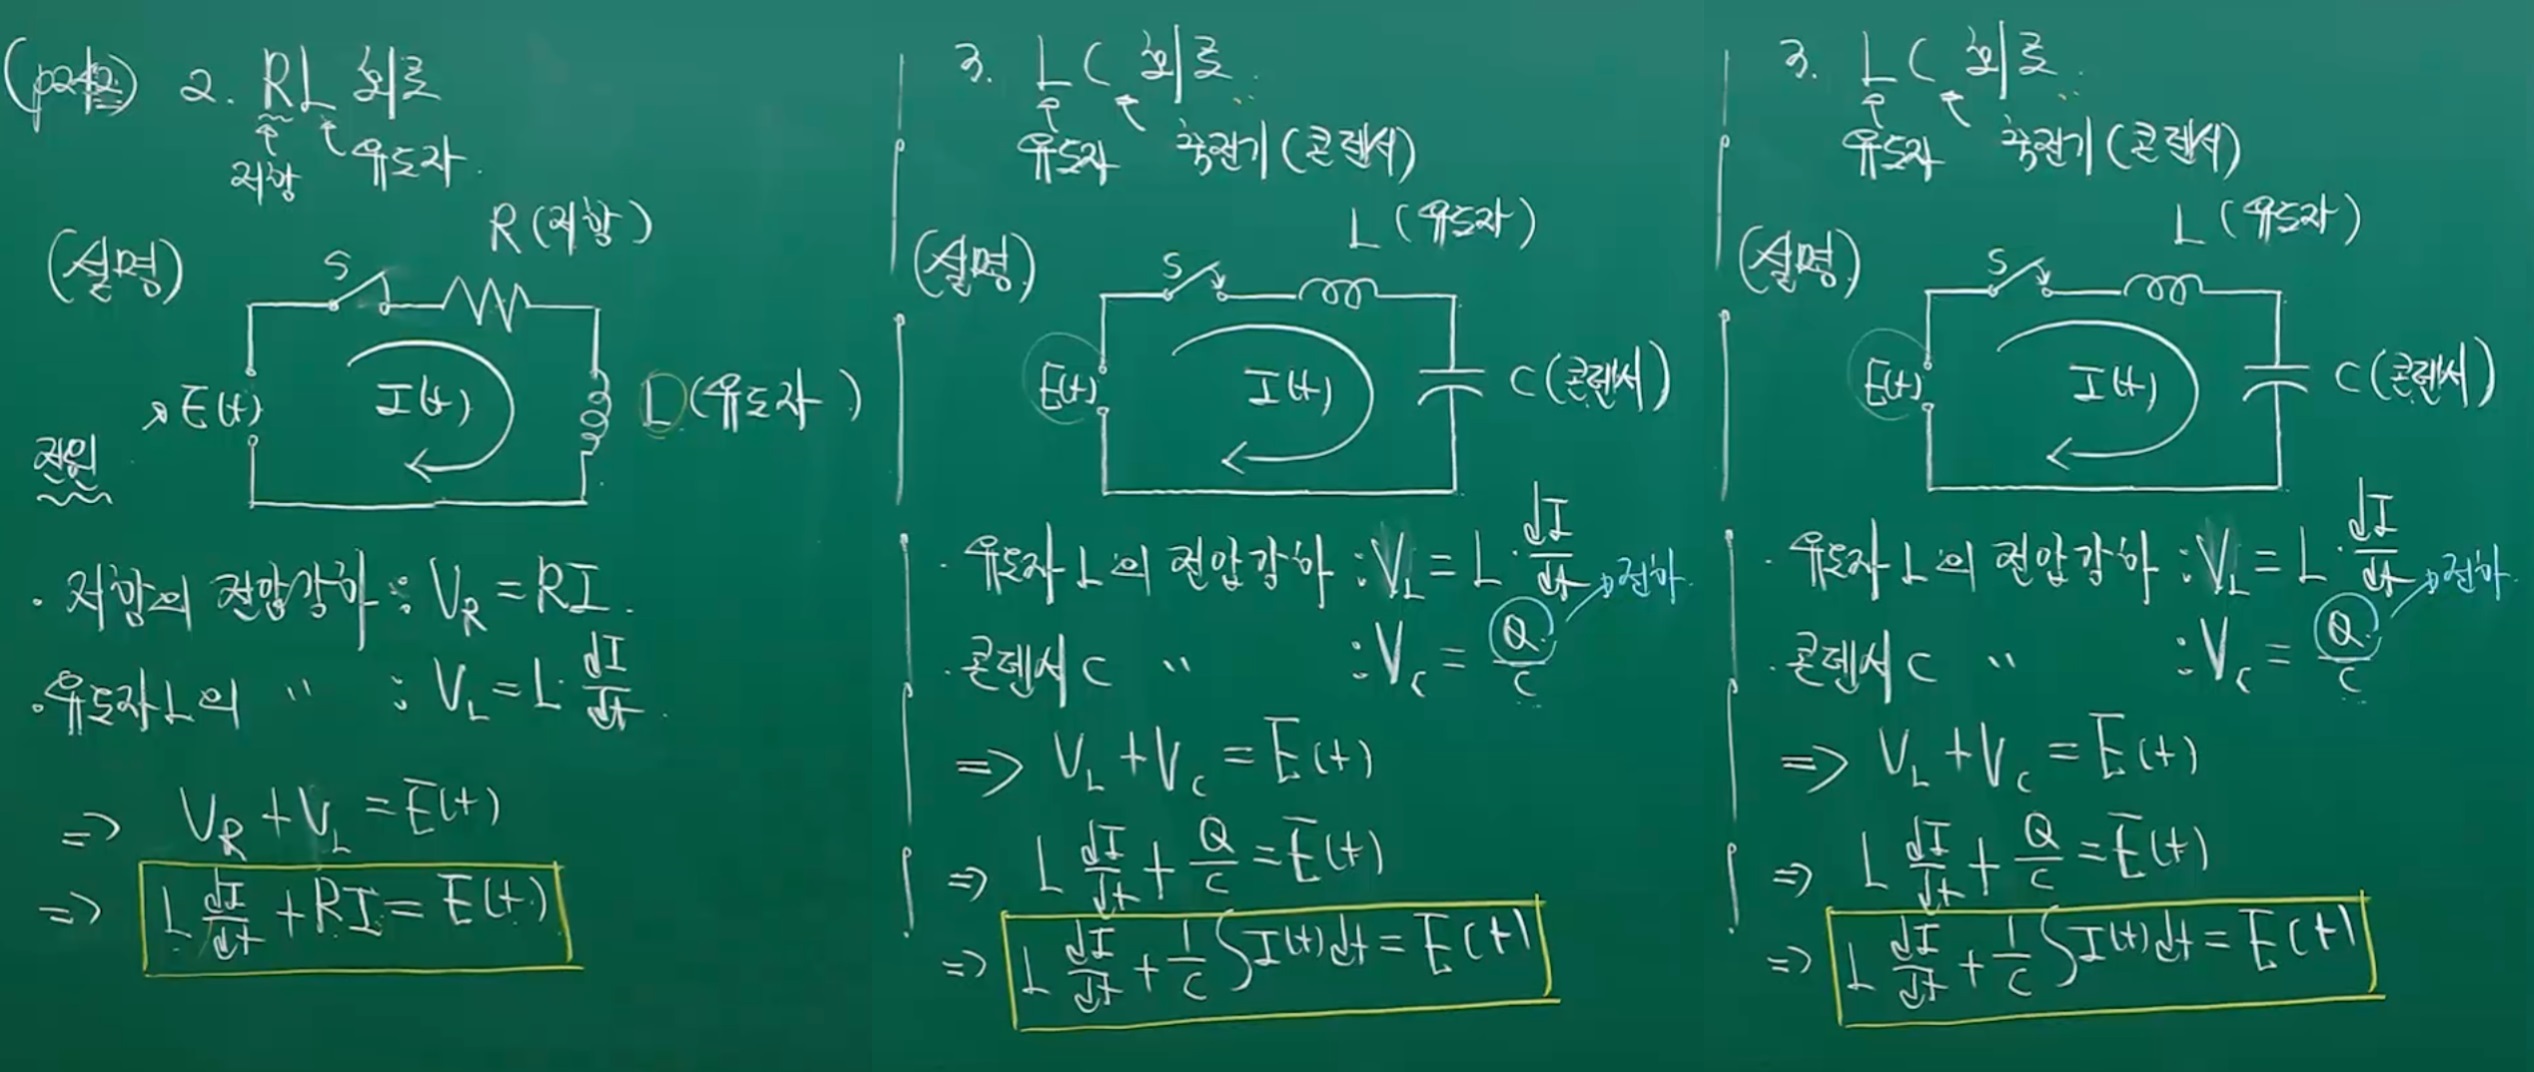 (p242) 2. RL 회로
저항 유도자.
(설명)
R (저항)
S
E(t)
I(t)
L (유도자)
전원
· 저항의 전압강하 : V_R = RI.
· 유도자 L의 〃 : V_L = L · dI/dt.
=> V_R + V_L = E(t)
=> L dI/dt + RI = E(t)
3. LC 회로.
유도자 축전기 (콘덴서)
L (유도자)
(설명)
S
E(t)
I(t)
C (콘덴서)
· 유도자 L의 전압강하 : V_L = L · dI/dt
→ 전하.
· 콘덴서 C 〃 : V_C = Q/C
=> V_L + V_C = E(t)
=> L dI/dt + Q/C = E(t)
=> L dI/dt + 1/C ∫I(t)dt = E(t)
3. LC 회로.
유도자 축전기 (콘덴서)
L (유도자)
(설명)
S
E(t)
I(t)
C (콘덴서)
· 유도자 L의 전압강하 : V_L = L · dI/dt
→ 전하.
· 콘덴서 C 〃 : V_C = Q/C
=> V_L + V_C = E(t)
=> L dI/dt + Q/C = E(t)
=> L dI/dt + 1/C ∫I(t)dt = E(t)